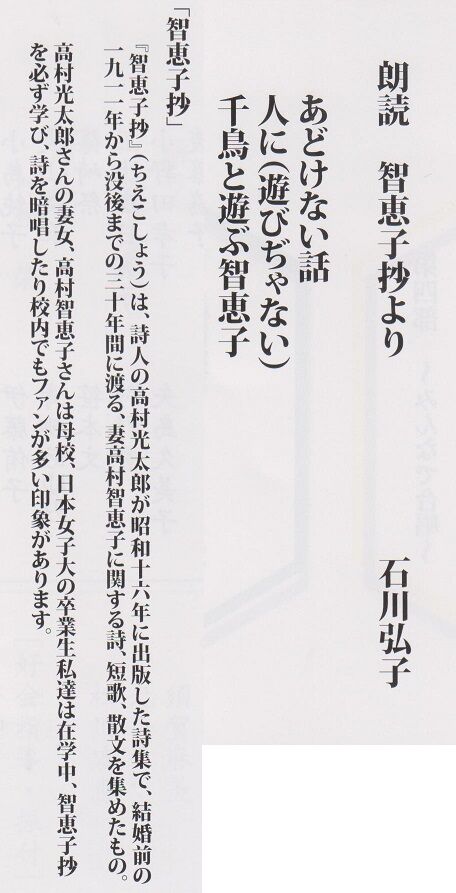 朗読 智恵子抄より 石川弘子
あどけない話
人に(遊びぢゃない)
千鳥と遊ぶ智恵子
「智恵子抄」
『智恵子抄』(ちえこしょう)は、詩人の高村光太郎が昭和十六年に出版した詩集で、結婚前の
一九一一年から没後までの三十年間に渡る、妻高村智恵子に関する詩、短歌、散文を集めたもの。
高村光太郎さんの妻女、高村智恵子さんは母校、日本女子大の卒業生私達は在学中、智恵子抄
を必ず学び、詩を暗唱したり校内でもファンが多い印象があります。